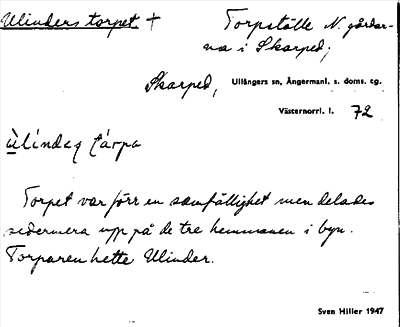 Ulinders torpet †
Torpställe N. gårdar-
na i Skarped;
Skarped, Ullångers sn, Ångermanl. s. doms. tg.
Västernorrl. l. 72
Torpet var förr en samfällighet men delades
sedermera upp på de tre hemmanen i byn.
Torparen hette Ulinder.
Sven Hiller 1947